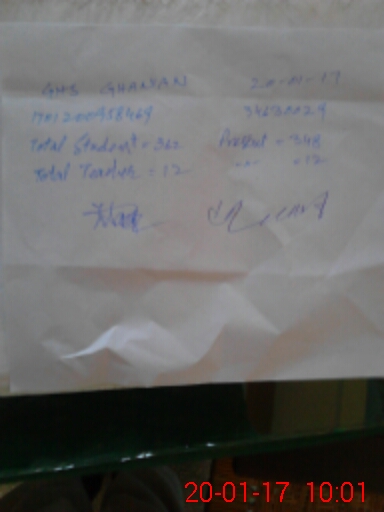 GHS GHANIAN 20-01-17
1701200958469 34630029
Total Student = 362 Present = 348
Total Teacher = 12 -"- = 12
20-01-17 10:01